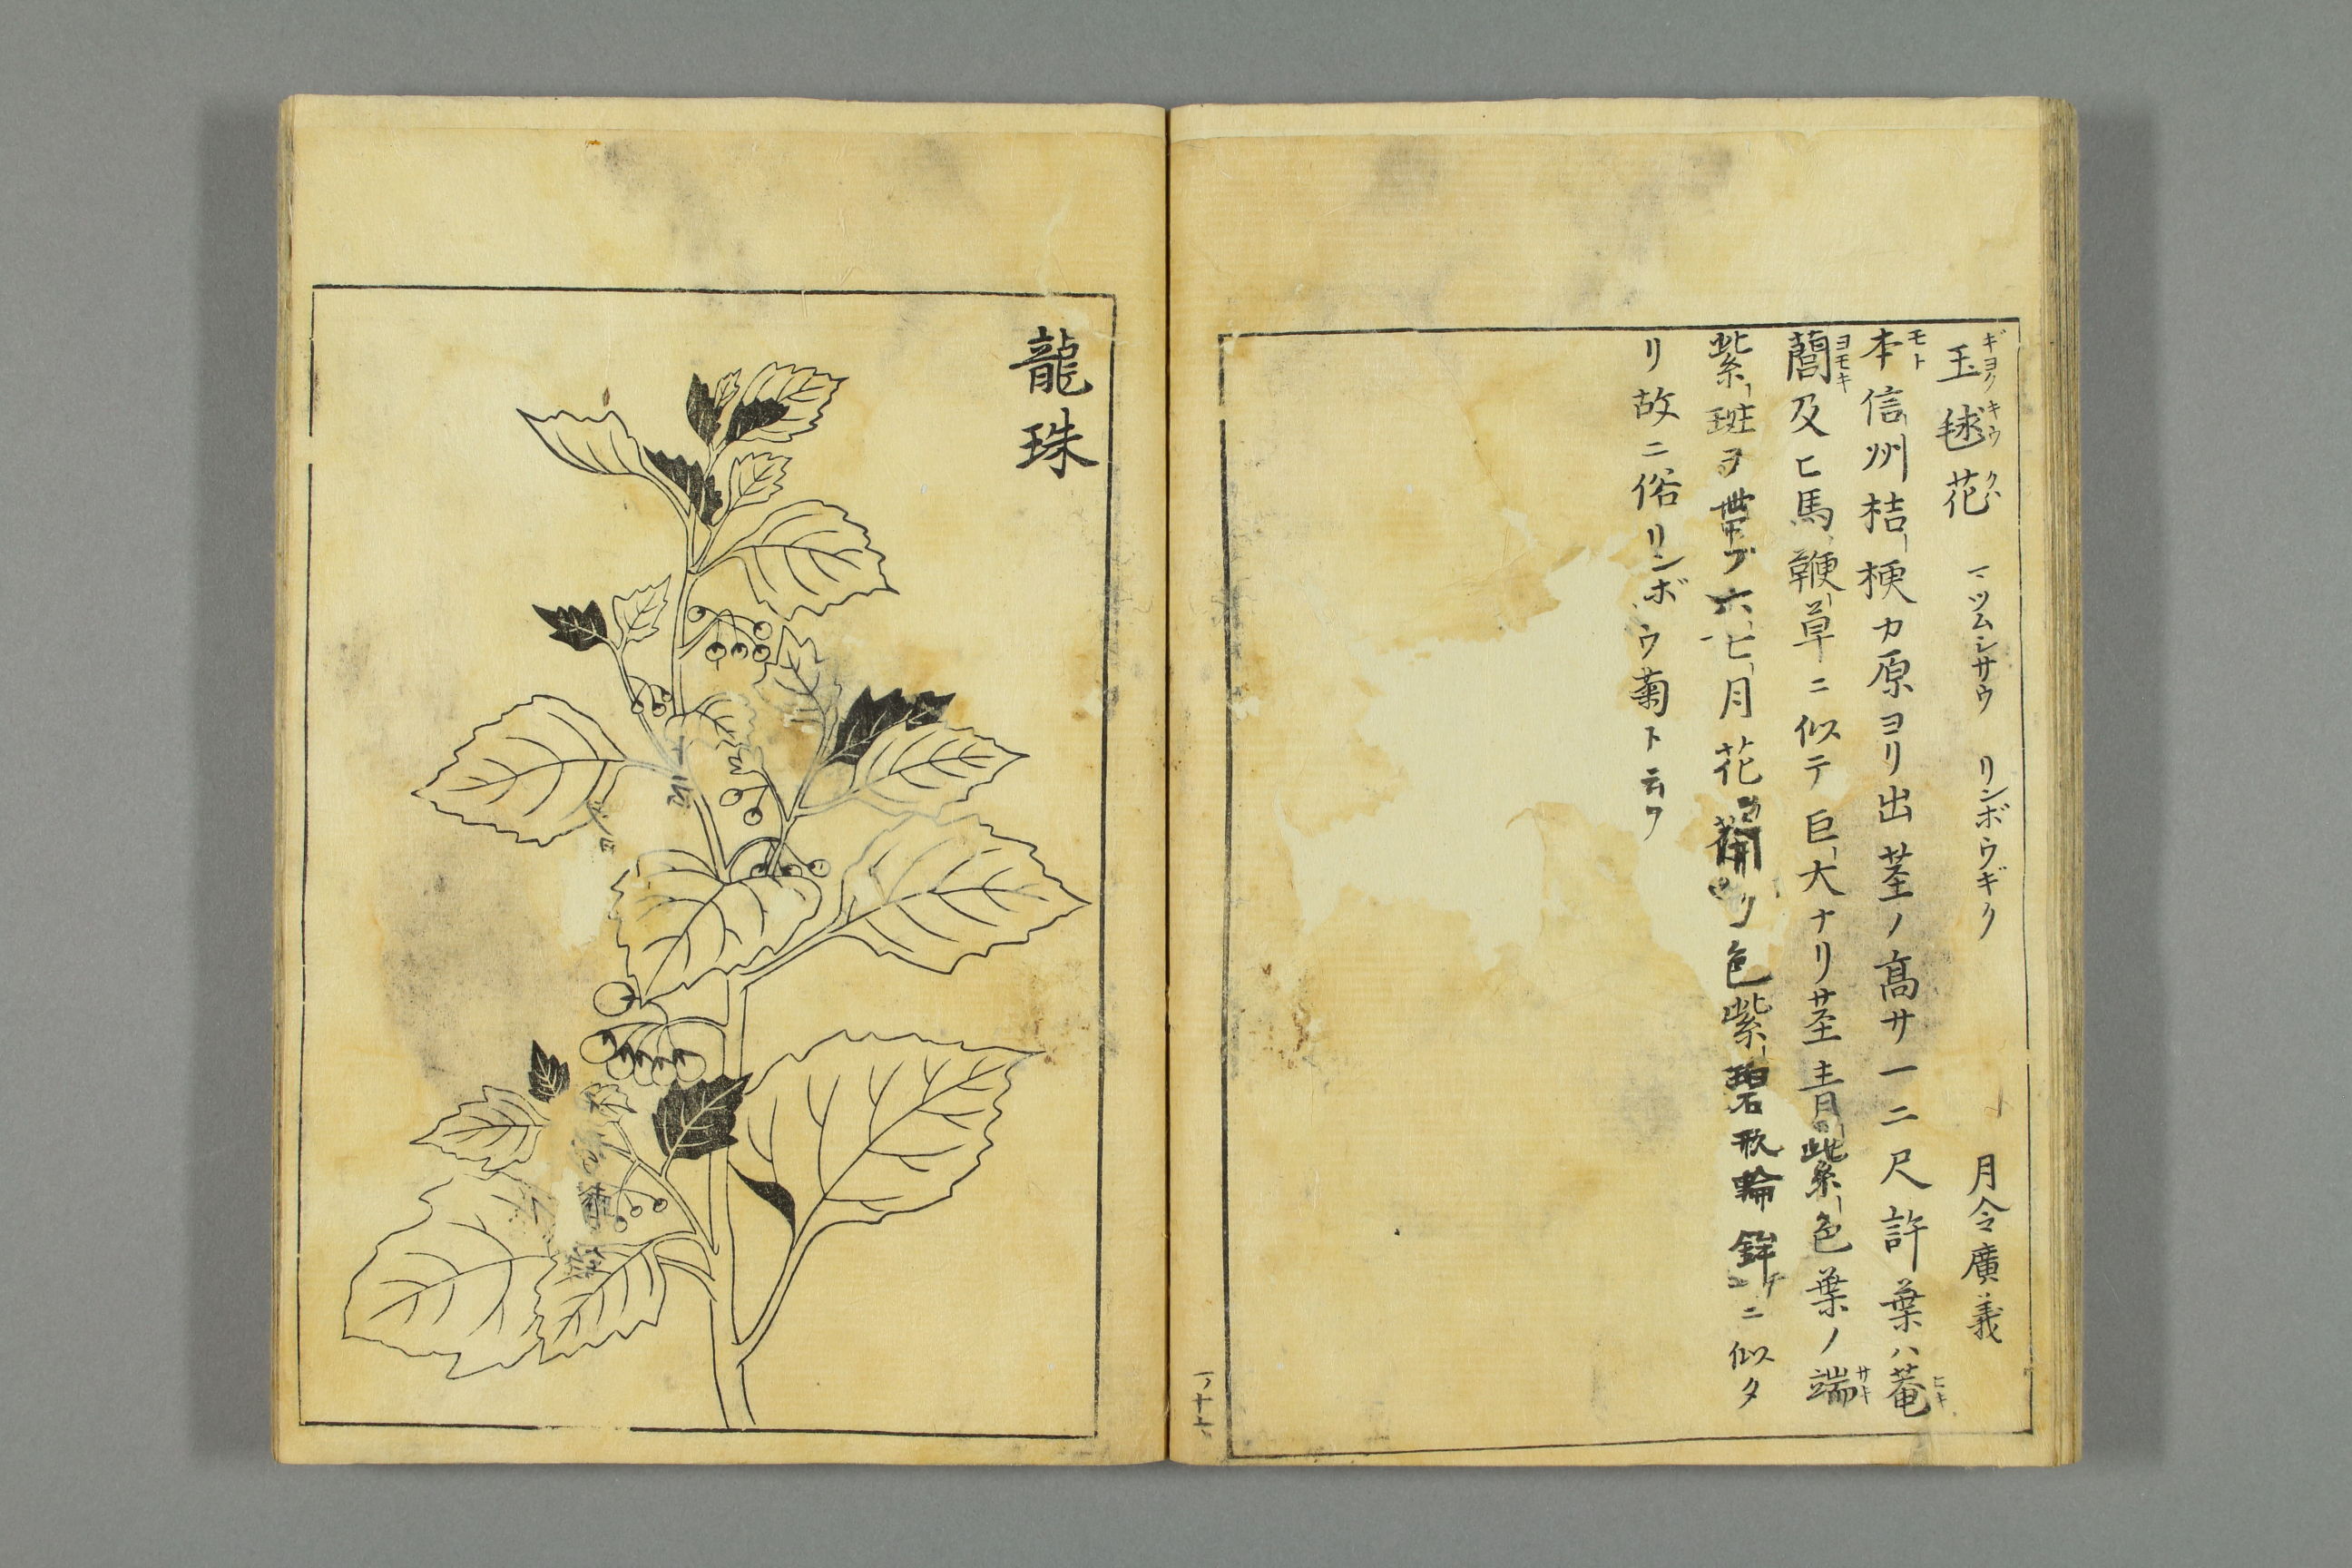 玉毬花 マツムシサウ リンボウギク 月令廣義
ギヨクキウクハ
本信州桔梗カ原ヨリ出茎ノ高サ一二尺許葉ハ菴
モト ヒキ
蕳及ヒ馬鞭草ニ似テ巨大ナリ茎青紫色葉ノ端
ヨモキ サキ
紫斑ヲ帶ブ六七月花開ク色紫碧形輪鉾ニ似タ
リ故ニ俗リンボウ菊ト云フ
一ノ十六
龍珠